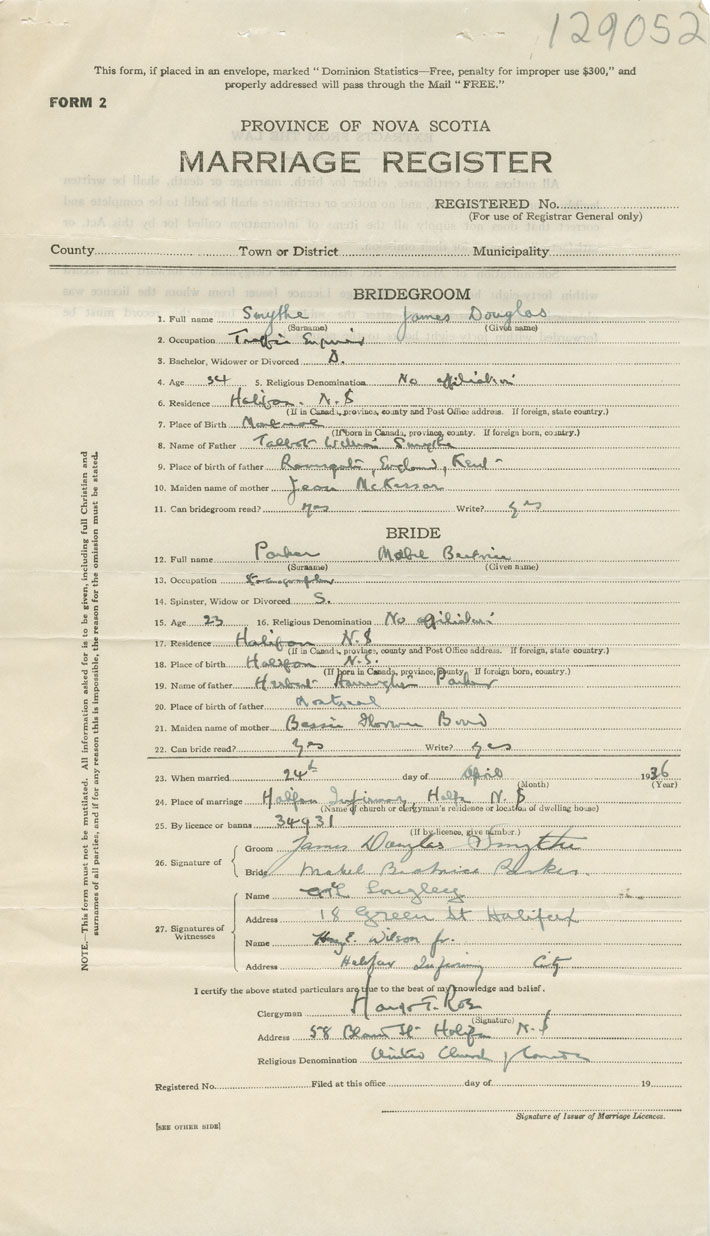 129052
This form, if placed in an envelope, marked "Dominion Statistics—Free, penalty for improper use $300," and
properly addressed will pass through the Mail "FREE."
FORM 2
PROVINCE OF NOVA SCOTIA
MARRIAGE REGISTER
REGISTERED No.
(For use of Registrar General only)
County Town or District Municipality
BRIDEGROOM
1. Full name Smythe James Douglas
(Surname) (Given name)
2. Occupation Traffic
3. Bachelor, Widower or Divorced D.
4. Age 34 5. Religious Denomination No affiliation
6. Residence Halifax. N.S
(If in Canada, province, county and Post Office address. If foreign, state country.)
7. Place of Birth Montreal
(If born in Canada, province, county. If foreign born, country.)
8. Name of Father Talbot William Smythe
9. Place of birth of father Ramsgate, England, Kent
10. Maiden name of mother Jean
11. Can bridegroom read? yes Write? yes
BRIDE
12. Full name Parker Mabel Beatrice
(Surname) (Given name)
13. Occupation Stenographer
14. Spinster, Widow or Divorced S.
15. Age 23 16. Religious Denomination No affiliation
17. Residence Halifax N.S
(If in Canada, province, county and Post Office address. If foreign, state country.)
18. Place of birth Halifax N.S.
(If born in Canada, province, county. If foreign born, country.)
19. Name of father Herbert Harrington Parker
20. Place of birth of father Montreal
21. Maiden name of mother Bessie
22. Can bride read? yes Write? yes
23. When married 24th day of April 1936
(Month) (Year)
24. Place of marriage Halifax Infirmary, Halifax N.S
(Name of church or clergyman's residence or location of dwelling house)
25. By licence or banns 34931
(If by licence, give number.)
26. Signature of
Groom James Douglas Smythe
Bride Mabel Beatrice Parker
27. Signatures of Witnesses
Name Longley
Address 18 Green St Halifax
Name E. Wilson Jr.
Address Halifax Infirmary City
I certify the above stated particulars are true to the best of my knowledge and belief.
Clergyman T. Ross
(Signature)
Address 58 St Halifax N.S
Religious Denomination United Church of Canada
Registered No. Filed at this office day of 19
Signature of Issuer of Marriage Licences.
[SEE OTHER SIDE]
NOTE.—This form must not be mutilated. All information asked for is to be given, including full Christian and
surnames of all parties, and if for any reason this is impossible, the reason for the omission must be stated.